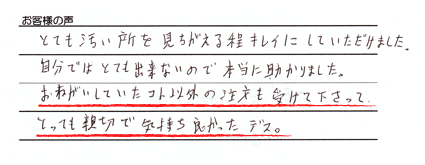 お客様の声
とても汚い所を見ちがえる程キレイにしていただけました。
自分ではとても出来ないので本当に助かりました。
おねがいしていたコト以外の注文も受けて下さって、
とっても親切で気持ち良かったデス。